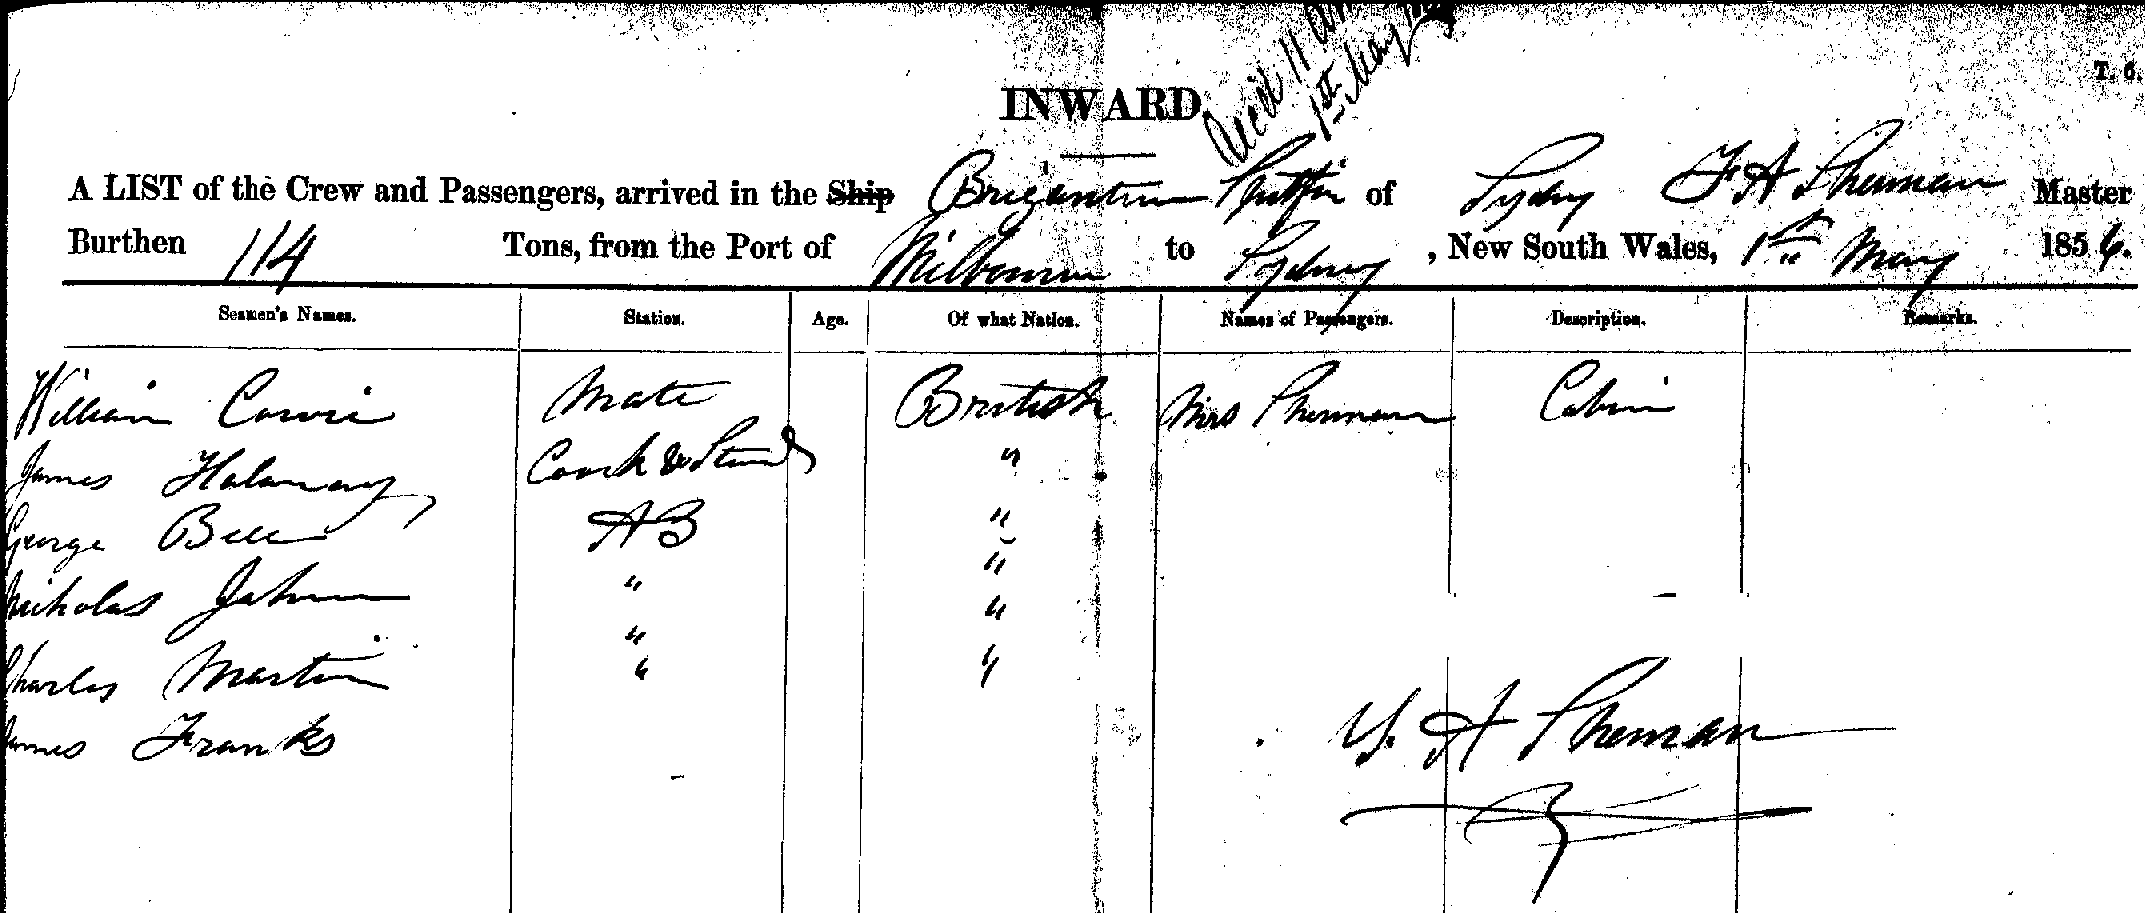 Recd 11 am
1st May
T. 6.
INWARD.
A LIST of the Crew and Passengers, arrived in the Ship Brigantine of Sydney F A Sherman Master
Burthen 114 Tons, from the Port of Melbourne to Sydney, New South Wales, 1st May 1856.
Seamen's Names. Station. Age. Of what Nation. Names of Passengers. Description. Remarks.
William Cowie Mate British Mrs Sherman Cabin
James Cook & Steward "
George Bell AB "
Nicholas John " "
Charles Martin " "
James Franks " "
A Sherman